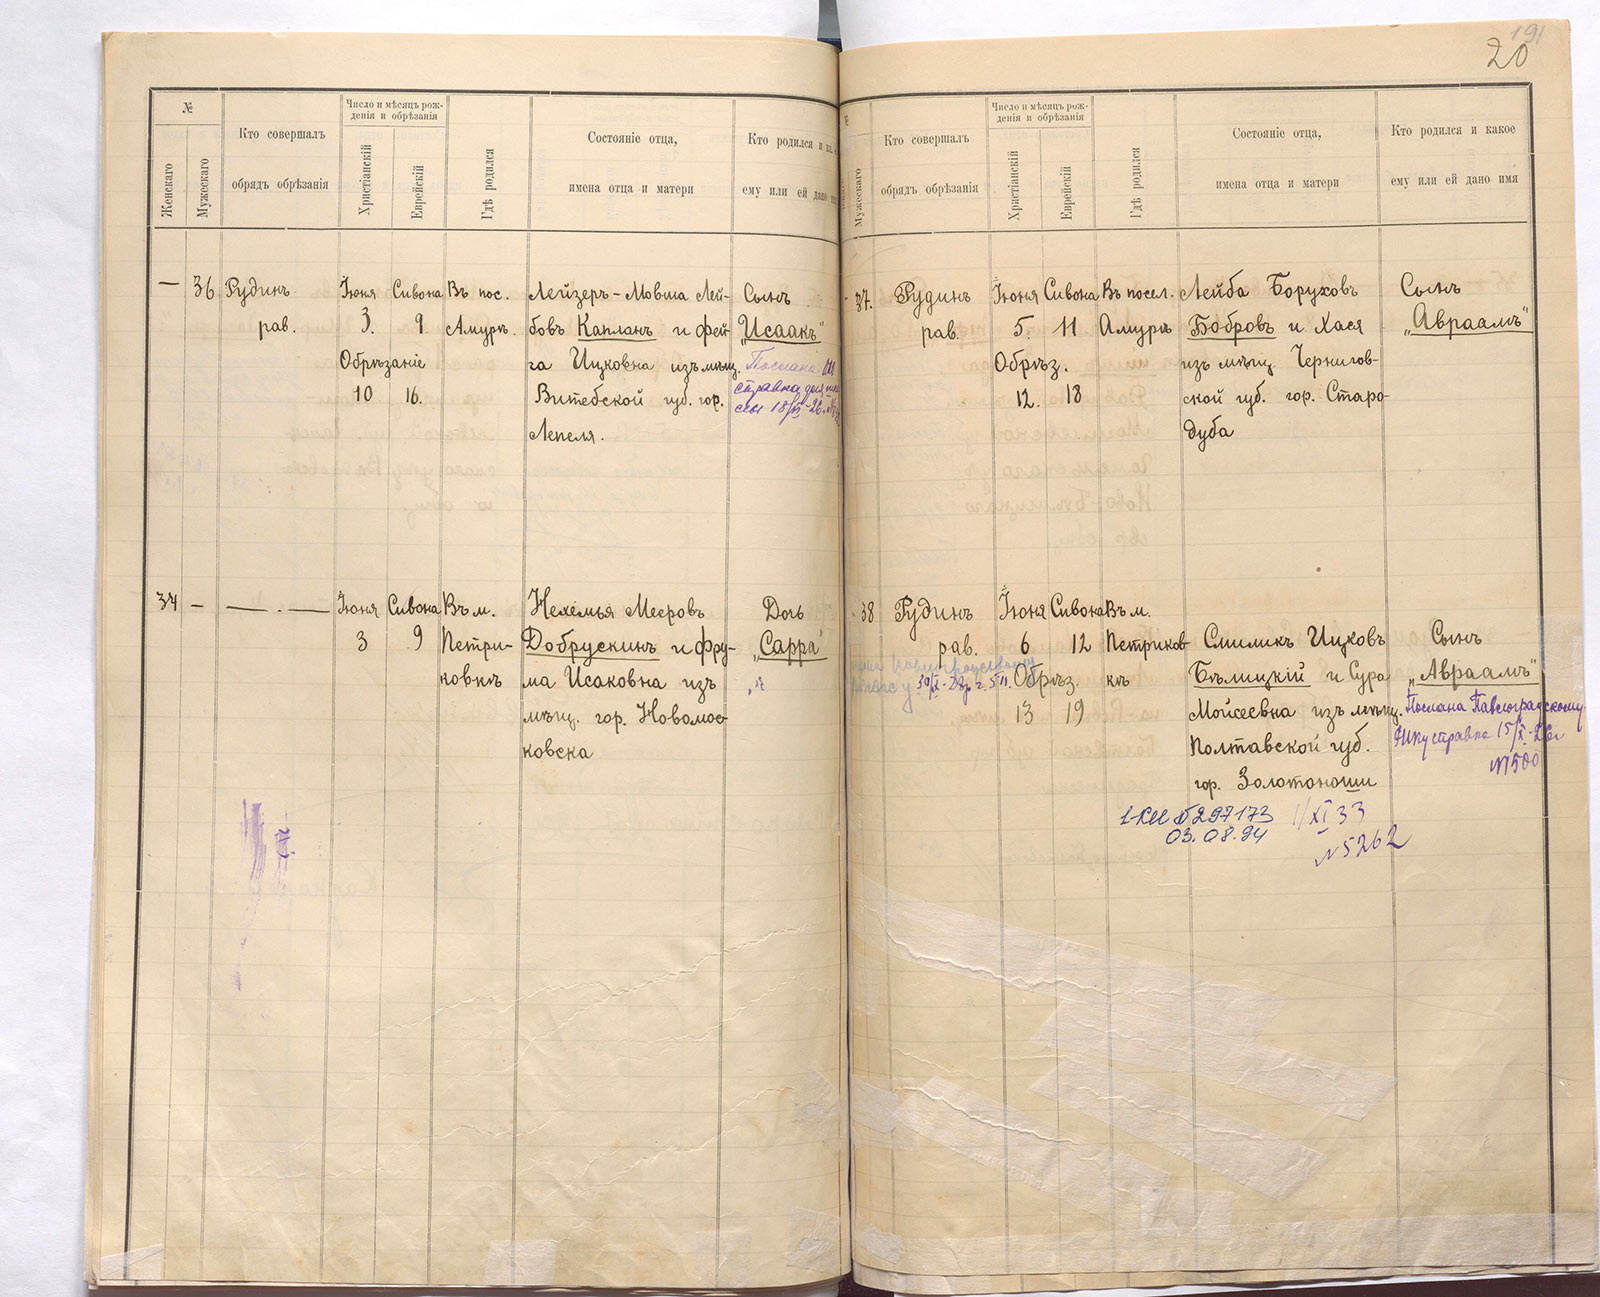 191
20
№
Женскаго
Мужескаго
Кто совершалъ
обрядъ обрѣзанія
Число и мѣсяцъ рож-
денія и обрѣзанія
Христіанскій
Еврейскій
Гдѣ родился
Состояніе отца,
имена отца и матери
Кто родился и
ему или ей дано
— 36 Рудинъ Іюня Сивона Въ пос. Лейзеръ-Мовша Лей- Сынъ
рав. 3. 9. Амурѣ. бовъ Капланъ и Фей- „Исаакъ"
Обрѣзаніе га Ицковна изъ мѣщ. Послана
10 16. Витебской губ. гор. справка для
Лепеля. 18/VI-26.
34 — — . — Іюня Сивона Въ м. Нехемья Мееровъ Дочь
3 9 Петри- Добрускинъ и Фру- „Сарра"
ковкѣ ма Исаковна изъ
мѣщ. гор. Новомос-
ковска
Мужескаго
Кто совершалъ
обрядъ обрѣзанія
Число и мѣсяцъ рож-
денія и обрѣзанія
Христіанскій
Еврейскій
Гдѣ родился
Состояніе отца,
имена отца и матери
Кто родился и какое
ему или ей дано имя
37. Рудинъ Іюня Сивона Въ посел. Лейба Боруховъ Сынъ
рав. 5. 11 Амурѣ Бобровъ и Хася „Авраамъ"
Обрѣз. изъ мѣщ. Чернигов-
12. 18 ской губ. гор. Старо-
дуба
38 Рудинъ Іюня Сивона Въ м.
рав. 6 12 Петриков- Смиликъ Ицковъ Сынъ
Обрѣз. кѣ Бѣлицкій и Сура „Авраамъ"
13 19 Мойсеевна изъ мѣщ. Послана Павлоградскому
Полтавской губ. справка 15/X-26г
гор. Золотоноши №1580
297173 1/XI 33
03.08.94 №5262